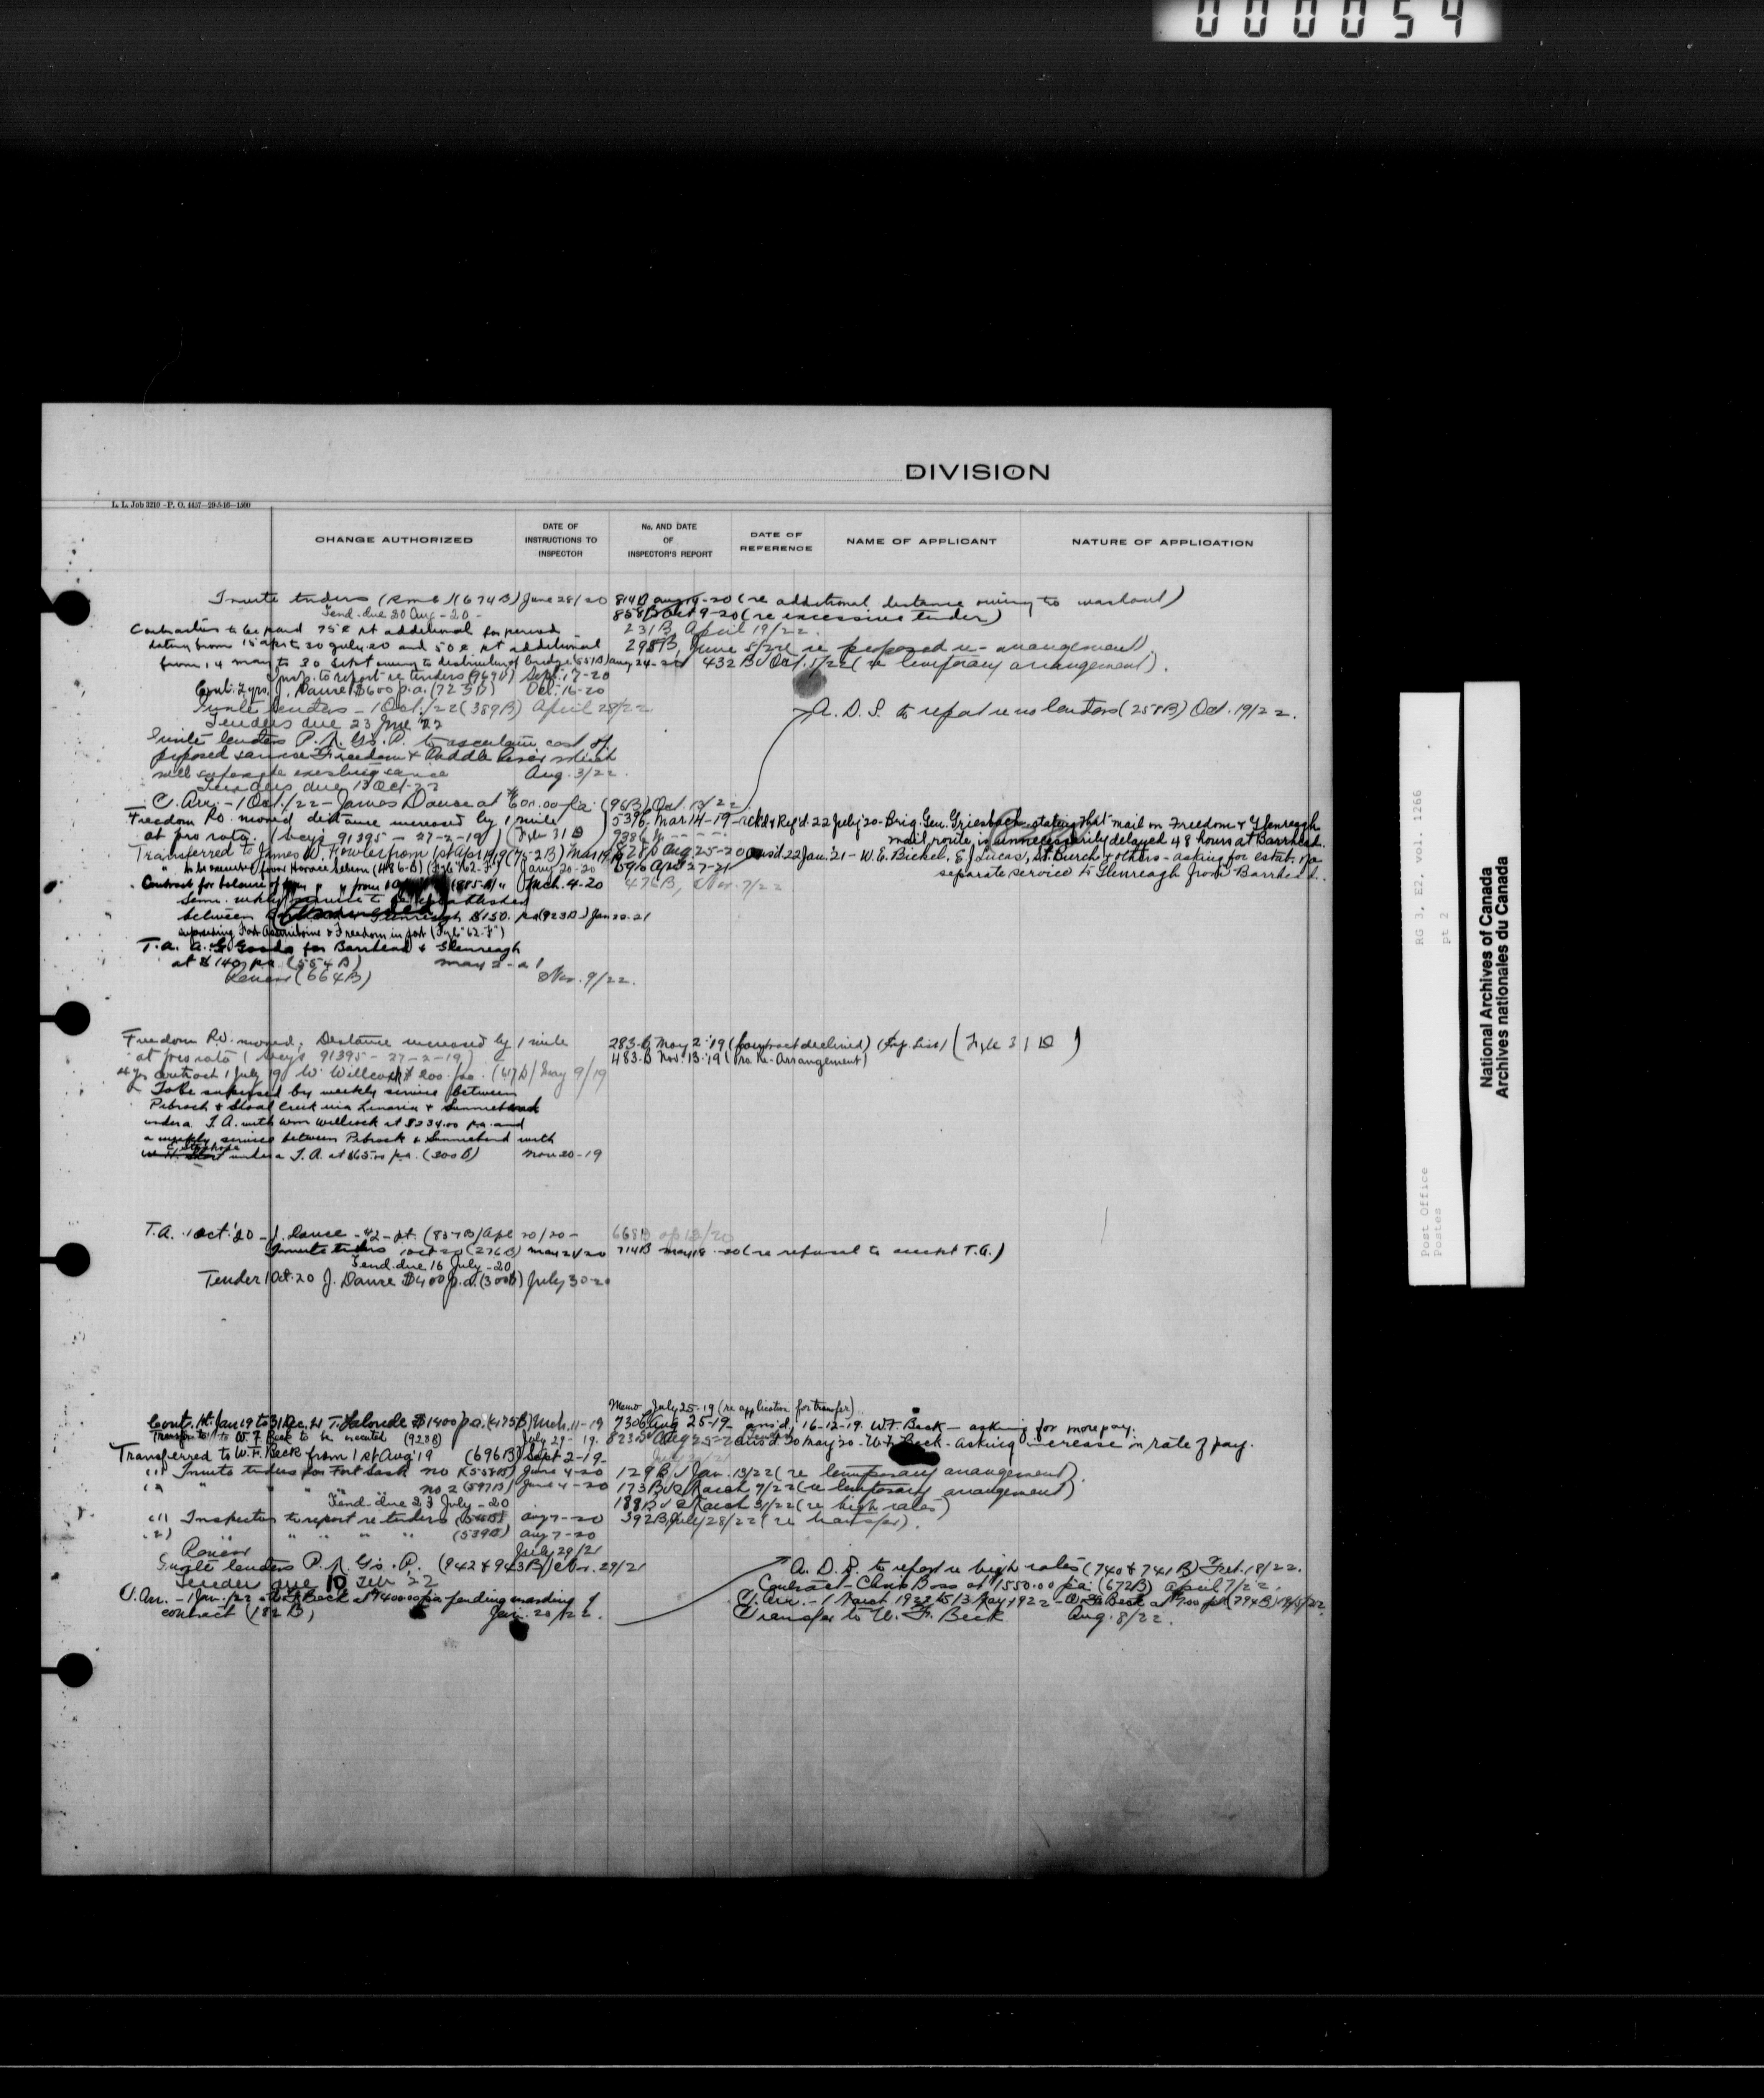 000054
DIVISION
L. L. Job 3210 - P. O. 4457-29-5-16-1500
CHANGE AUTHORIZED
DATE OF INSTRUCTIONS TO INSPECTOR
No. AND DATE OF INSPECTOR'S REPORT
DATE OF REFERENCE
NAME OF APPLICANT
NATURE OF APPLICATION
Invite tenders (674B) June 28/20 814B Aug 14-20 (re additional distance owing to
Tend. due 20 Aug - 20 - 858B Oct 9-20 (re excessive tender)
Contractor to be paid 75¢ pt additional for period 231B April 19/22.
dating from 15 April to 30 July 20 and 50¢ pt additional 298B, June 5/22 re proposed re-arrangement.
from 14 May to 30 Sept owing to destruction of bridge (551B) Aug 24-20 432B Oct. 5/22 (re temporary arrangement).
Insp. to report re tenders Sept. 17-20
Cont. 2 yrs. J. Dause $600 p.a. (725B) Oct. 16-20
Invite tenders - 1 Oct./22 (389B) April 28/22
Tenders due 23 June '22
A. D. S. to report re no tenders (258B) Oct. 19/22.
Invite tenders P. N. Gs. P. to ascertain cost of
proposed service Freedom & Paddle River which
will supersede existing service Aug. 3/22.
Tenders due 13 Oct-22
C. Arr. - 1 Oct./22 - James Dause at $600.00 p.a. (96B) Oct. 13/22
Freedom P.O. moved distance increased by 1 mile 539B Mar 14-19 - ackd & Ref'd. 22 July '20 - Brig. Gen. Griesbach stating that mail on Freedom & Glenreagh
at pro rata. (beys 91395 - 27-2-19) (File 31 D) mail route is unnecessarily delayed 48 hours at Barrhead.
Transferred to James W. Fowler from 1st Apr 1919 (752B) Mar 19 828B Aug. 25-20 ans'd 22 Jan. '21 - W. E. Bickel, E. Lucas, St. Burch & others - asking for estab. of a
separate service to Glenreagh from Barrhead.
Contract for balance of (885-B) Mch. 4-20 476B, Nov. 7/22
Semi-wkly service to be established
between Glenreagh $150. pa (923B) Jan 20-21
superseding Fort Assiniboine & Freedom in part (File "62-F")
T.A. A. G. Goods for Barrhead & Glenreagh
at $140 pa (554B) May 2-21
Renew (664B) Nov. 9/22.
Freedom P.O. moved. Distance increased by 1 mile 283-B May 2-'19 (contract declined) (File 31 D)
at pro rata (beys 91395 - 27-2-19) 483-B Nov. 13-19 (Pro. Re-Arrangement)
4 yr contract 1 July 19 W. Willcock $200 pa. (47B) May 9/19
To be superseded by weekly service between
Pibroch & Shoal Creek via Linaria & Sunniebend
under a T.A. with Wm Willcock at $234.00 p.a. and
a weekly service between Pibroch & Sunniebend with
under a T.A. at $65.00 p.a. (200B) Nov 20-19
T.A. 1 Oct. '20 - J. Dause - 42 - pt. (857B) Apl 20/20 - 668B ap 12/20
Invite tenders 1 Oct-20 (276B) May 24/20 714B May 18-20 (re refusal to accept T.A.)
Tend. due 16 July - 20
Tender 1 Oct. 20 J. Dause $400 p.a. (300B) July 30-20
Memo July 25-19 (re application for transfer)
Cont. 1st Jan 19 to 31 Dec. 21 T. Lalonde $1400 pa. (475B) Mch. 11-19 730B Aug 25-19 ans'd. 16-12-19. W.F. Beck - asking for more pay.
Transfer to W. F. Beck to be executed (928B) July 29-19. 823B Aug 25-20 ans'd. 20 May '20 - W.F. Beck - asking increase in rate of pay.
Transferred to W.F. Beck from 1st Aug '19 (696B) Sept 2-19-
(1) Invite tenders for Fort Sask no 1 (558B) June 4-20 129B Jan. 13/22 (re temporary arrangement).
(2) " " " " no 2 (597B) June 4-20 173B March 7/22 (re temporary arrangement)
Tend. due 23 July - 20 188B March 31/22 (re high rates)
(1) Inspector to report re tenders Aug 7-20 392B July 28/22 (re transfer).
(2) " " " " (539B) Aug 7-20
Renew July 29/21
Invite tenders P. N. Gs. P. (942 & 943B) Nov. 29/21 A. D. S. to report re high rates (740 & 741B) Feb. 18/22.
Tender due 10 Feb '22 Contract - Chas Boss at $1550.00 pa. (672B) April 7/22.
C. Arr. - 1 Jan./22 - W.F. Beck at $1400.00 pa pending awarding of C. Arr. - 1 March 1922 to 13 May 1922 - W. F. Beck at
contract (182B) Jan. 20/22. Transfer to W. F. Beck Aug. 8/22.
Post Office
Postes
RG 3, E2, vol. 1266
pt 2
National Archives of Canada
Archives nationales du Canada